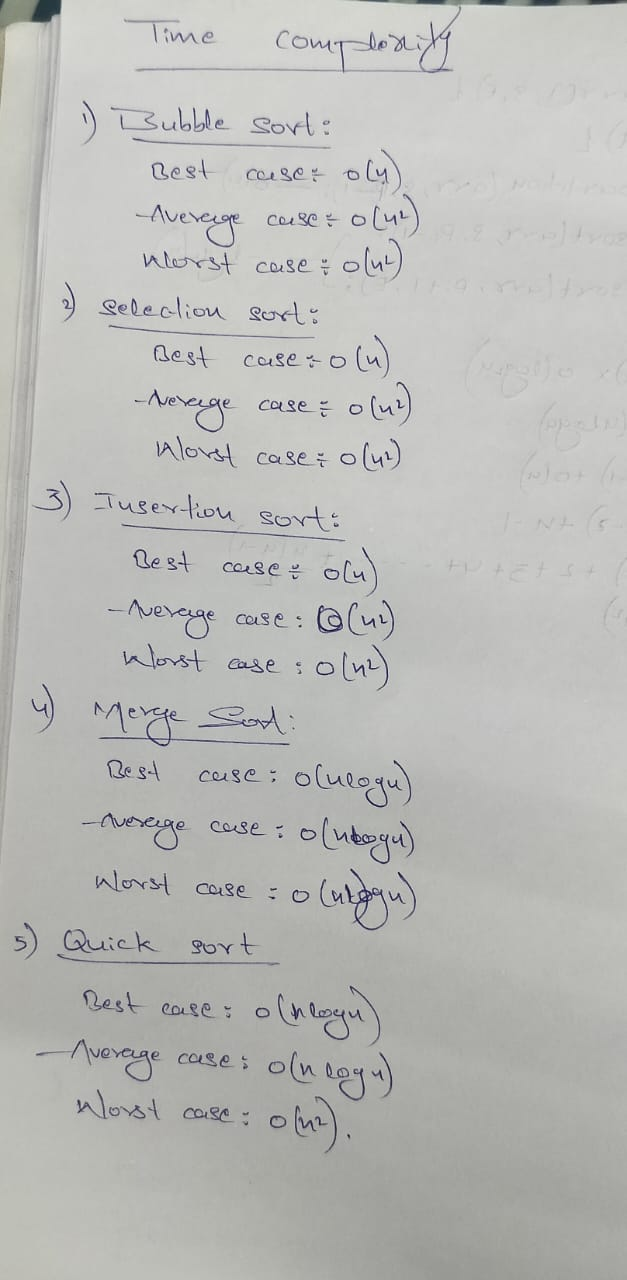 Time complexity
1) Bubble sort:
Best case: O(n)
Average case: O(n²)
Worst case: O(n²)
2) selection sort:
Best case: O(n)
Average case: O(n²)
Worst case: O(n²)
3) Insertion sort:
Best case: O(n)
Average case: O(n²)
Worst case: O(n²)
4) Merge Sort:
Best case: O(nlogn)
Average case: O(nlogn)
Worst case: O(nlogn)
5) Quick sort
Best case: O(nlogn)
Average case: O(n logn)
Worst case: O(n²).